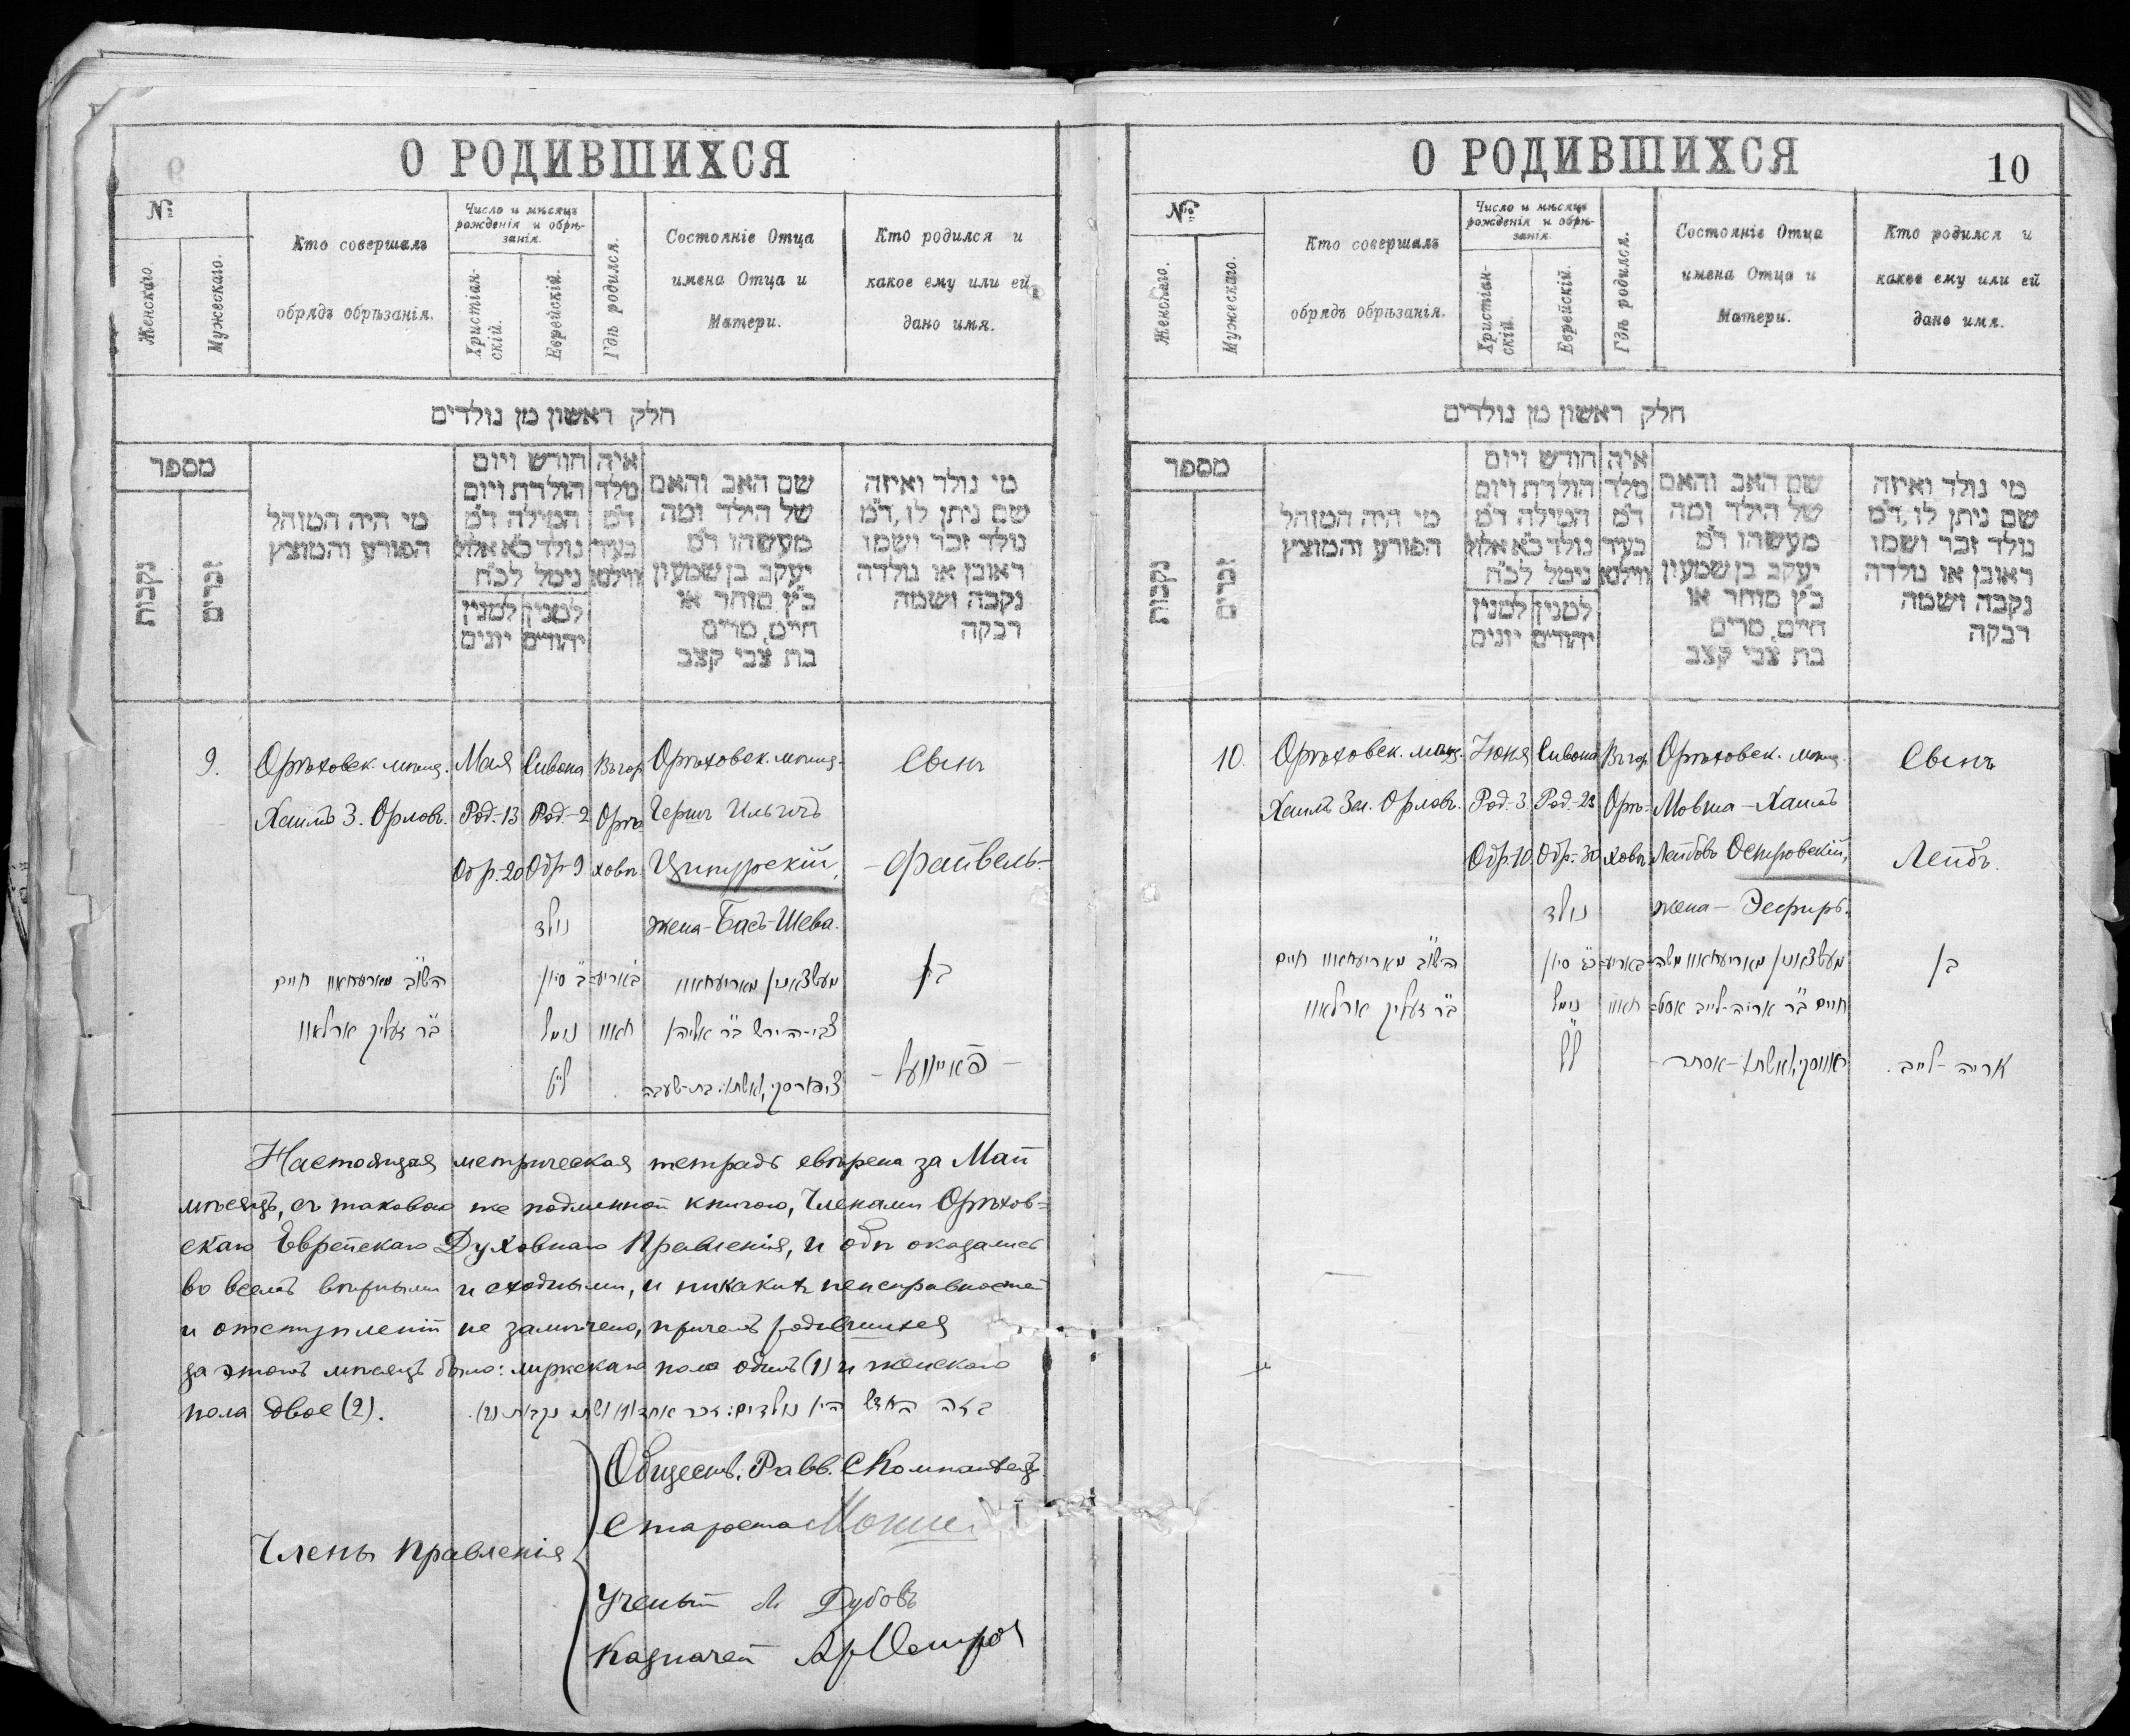 О РОДИВШИХСЯ
№
Женскаго.
Мужескаго.
Кто совершалъ
обрядъ обрѣзанія.
Число и мѣсяцъ
рожденія и обрѣ-
занія.
Христіан-
скій.
Еврейскій.
Гдѣ родился.
Состояніе Отца
имена Отца и
Матери.
Кто родился и
какое ему или ей
дано имя.
חלק ראשון מן נולדים
מספר
נקבות
זכרים
מי היה המוהל
הפורע והמוצץ
חודש ויום
הולדת ויום
המילה ד״מ
נולד כ״א אלול
נימל לכ״ח
למנין למנין
יהודים יונים
איה
מלד
ד״מ
בעיר
ווילנא
שם האב והאם
של הילד ומה
מעשהו ד״מ
יעקב בן שמעון
כ״ץ סוחר או
חיים, מרים
בת צבי קצב
מי נולד ואיזה
שם ניתן לו, ד״מ
נולד זכר ושמו
ראובן או נולדה
נקבה ושמה
רבקה
9.
Орѣховск. мѣщ.
Хаимъ З. Орловъ.
Мая
Род.-13
Обр.20
Сивона
Род.-2
Обр-9
נולד
ב׳ סיון
נימול
לט׳
Въ гор.
Орѣ
ховѣ.
Орѣховск. мѣщ.
Гершъ Ильичъ
Ципурскій,
жена-Басъ-Шева.
צבי-הירש ב״ר אליהו
Сынъ
-Файвель-
בן
- פאייוועל -
Настоящая метрическая тетрадь свѣрена за Май
мѣсяцъ, съ таковою же подлинной книгою, Членами Орѣхов=
скаго Еврейскаго Духовнаго Правленія, и обѣ оказались
во всемъ вѣрными и сходными, и никакихъ неисправностей
и отступленій не замѣчено, причемъ родившихся
за этотъ мѣсяцъ было: мужскаго пола одинъ (1) и женскаго
пола двое (2).
בזה החדש היו נולדים: זכר אחד (1) ושתי נקבות (2).
Члены Правленія
Обществ. Равв.
Староста
Ученый Л Дубовъ
Казначей
О РОДИВШИХСЯ
10
№
Женскаго.
Мужескаго.
Кто совершалъ
обрядъ обрѣзанія.
Число и мѣсяцъ
рожденія и обрѣ-
занія.
Христіан-
скій.
Еврейскій.
Гдѣ родился.
Состояніе Отца
имена Отца и
Матери.
Кто родился и
какое ему или ей
дано имя.
חלק ראשון מן נולדים
מספר
נקבות
זכרים
מי היה המוהל
הפורע והמוצץ
חודש ויום
הולדת ויום
המילה ד״מ
נולד כ״א אלול
נימל לכ״ח
למנין למנין
יהודים יונים
איה
מלד
ד״מ
בעיר
ווילנא
שם האב והאם
של הילד ומה
מעשהו ד״מ
יעקב בן שמעון
כ״ץ סוחר או
חיים, מרים
בת צבי קצב
מי נולד ואיזה
שם ניתן לו, ד״מ
נולד זכר ושמו
ראובן או נולדה
נקבה ושמה
רבקה
10.
Орѣховск. мѣщ.
Хаимъ Зел. Орловъ.
Іюня
Род.-3.
Обр.10.
Сивона
Род.-23
Обр.-30
נולד
נימול
ל׳
Въ гор.
Орѣ-
ховѣ.
Орѣховск. мѣщ.
Мовша-Хаимъ
Лейбовъ Островскій,
жена- Эсфирь.
חיים ב״ר אריה-לייב
Сынъ
Лейбъ.
בן
אריה-לייב.